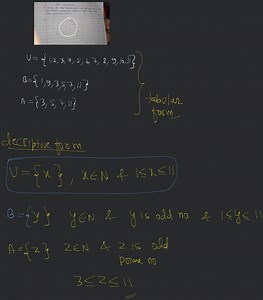 U = {1,2,3,4,5,6,7,8,9,10,11}
B = {1,9,3,5,7,11}
A = {3,5,7,11}
tabular
form
descriptive form
U = {x}, x∈N & 1≤x≤11
B = {y} y∈N & y is odd no & 1≤y≤11
A = {z} z∈N & z is odd
prime no
3≤z≤11